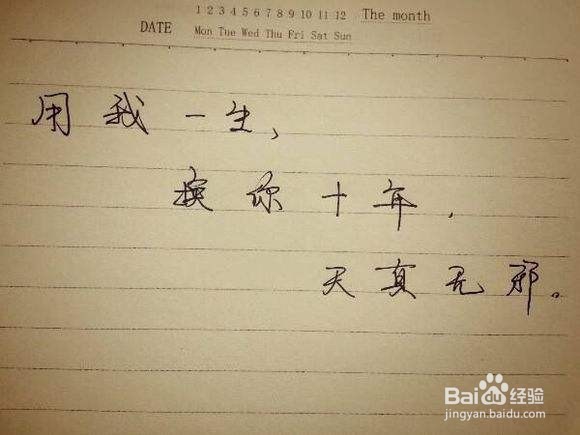 1 2 3 4 5 6 7 8 9 10 11 12 The month
DATE Mon Tue Wed Thu Fri Sat Sun
用我一生,
换你十年,
天真无邪。
Baidu经验
jingyan.baidu.com